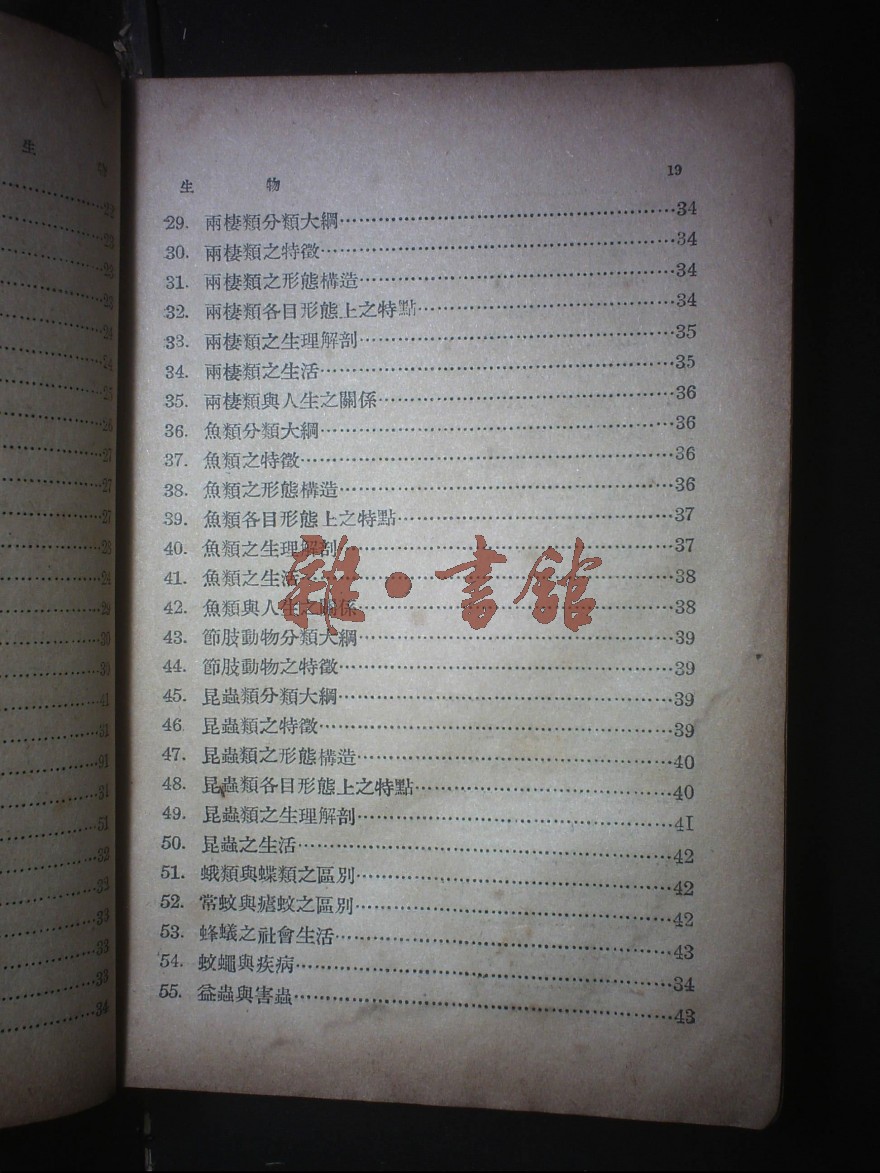 生 物
22
23
23
23
24
24
25
26
27
27
27
28
24
29
30
30
41
31
91
31
51
32
33
33
33
33
34
生 物 19
29. 兩棲類分類大綱…34
30. 兩棲類之特徵…34
31. 兩棲類之形態構造…34
32. 兩棲類各目形態上之特點…34
33. 兩棲類之生理解剖…35
34. 兩棲類之生活…35
35. 兩棲類與人生之關係…36
36. 魚類分類大綱…36
37. 魚類之特徵…36
38. 魚類之形態構造…36
39. 魚類各目形態上之特點…37
40. 魚類之生理解剖…37
41. 魚類之生活…38
42. 魚類與人生之關係…38
43. 節肢動物分類大綱…39
44. 節肢動物之特徵…39
45. 昆蟲類分類大綱…39
46. 昆蟲類之特徵…39
47. 昆蟲類之形態構造…40
48. 昆蟲類各目形態上之特點…40
49. 昆蟲類之生理解剖…41
50. 昆蟲之生活…42
51. 蛾類與蝶類之區別…42
52. 常蚊與瘧蚊之區別…42
53. 蜂蟻之社會生活…43
54. 蚊蠅與疾病…34
55. 益蟲與害蟲…43
雜·書館